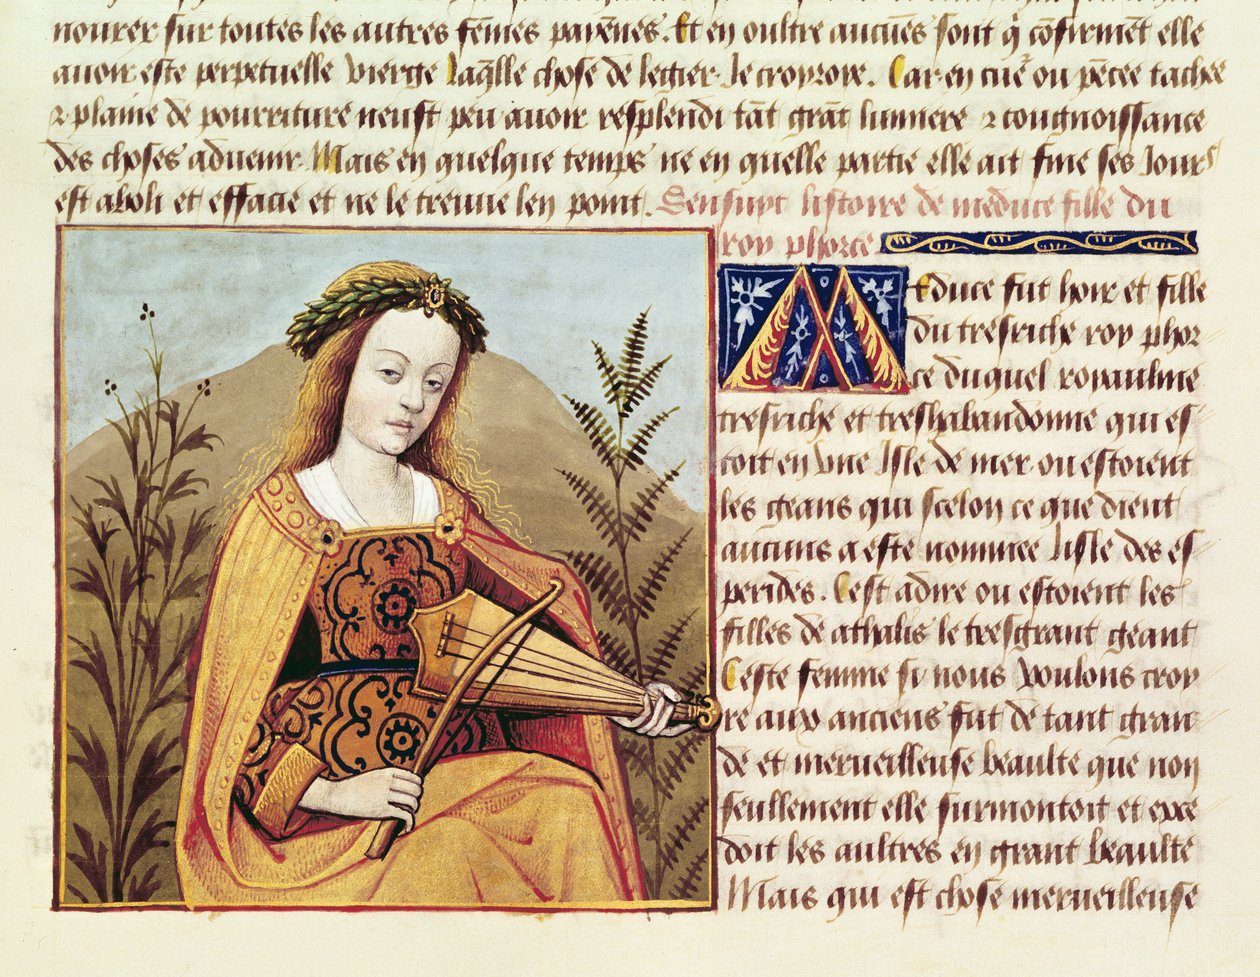 nourer sur toutes les autres fēmes payēnes. Et en oultre aucuēs sont q̄ cōfirmēt elle
avoir este perpetuelle vierge Laq̄lle chose de legier. Je croyroye. Car en cue͛ ou pēcee tachee
⁊ plaine de pourriture neust peu avoir resplendi tāt grāt lumiere ⁊ cougnoissance
des choses advenir. Mais en quelque temps ne en quelle partie elle ait fine ses Jours
est aboli et efface et ne le treuve len point. Sensuyt listoire de meduce fille du
roy phorce
Meduce fut hoir et fille
du tresriche roy phor
ce duquel royaulme
tresriche et treshabandonne qui es
toit en vne Isle de mer ou estoient
les geans qui scelon ce que dient
aucuns a este nommee lisle des es
perides. Cest adire ou estoient les
filles de athalis le tresgrant geant
Ceste femme si nous voulons croy
re aux anciens fut de tant gran
de et merveilleuse beaulte que non
seullement elle surmontoit et exce
doit les aultres en grant beaulte
Mais qui est chose merveilleuse